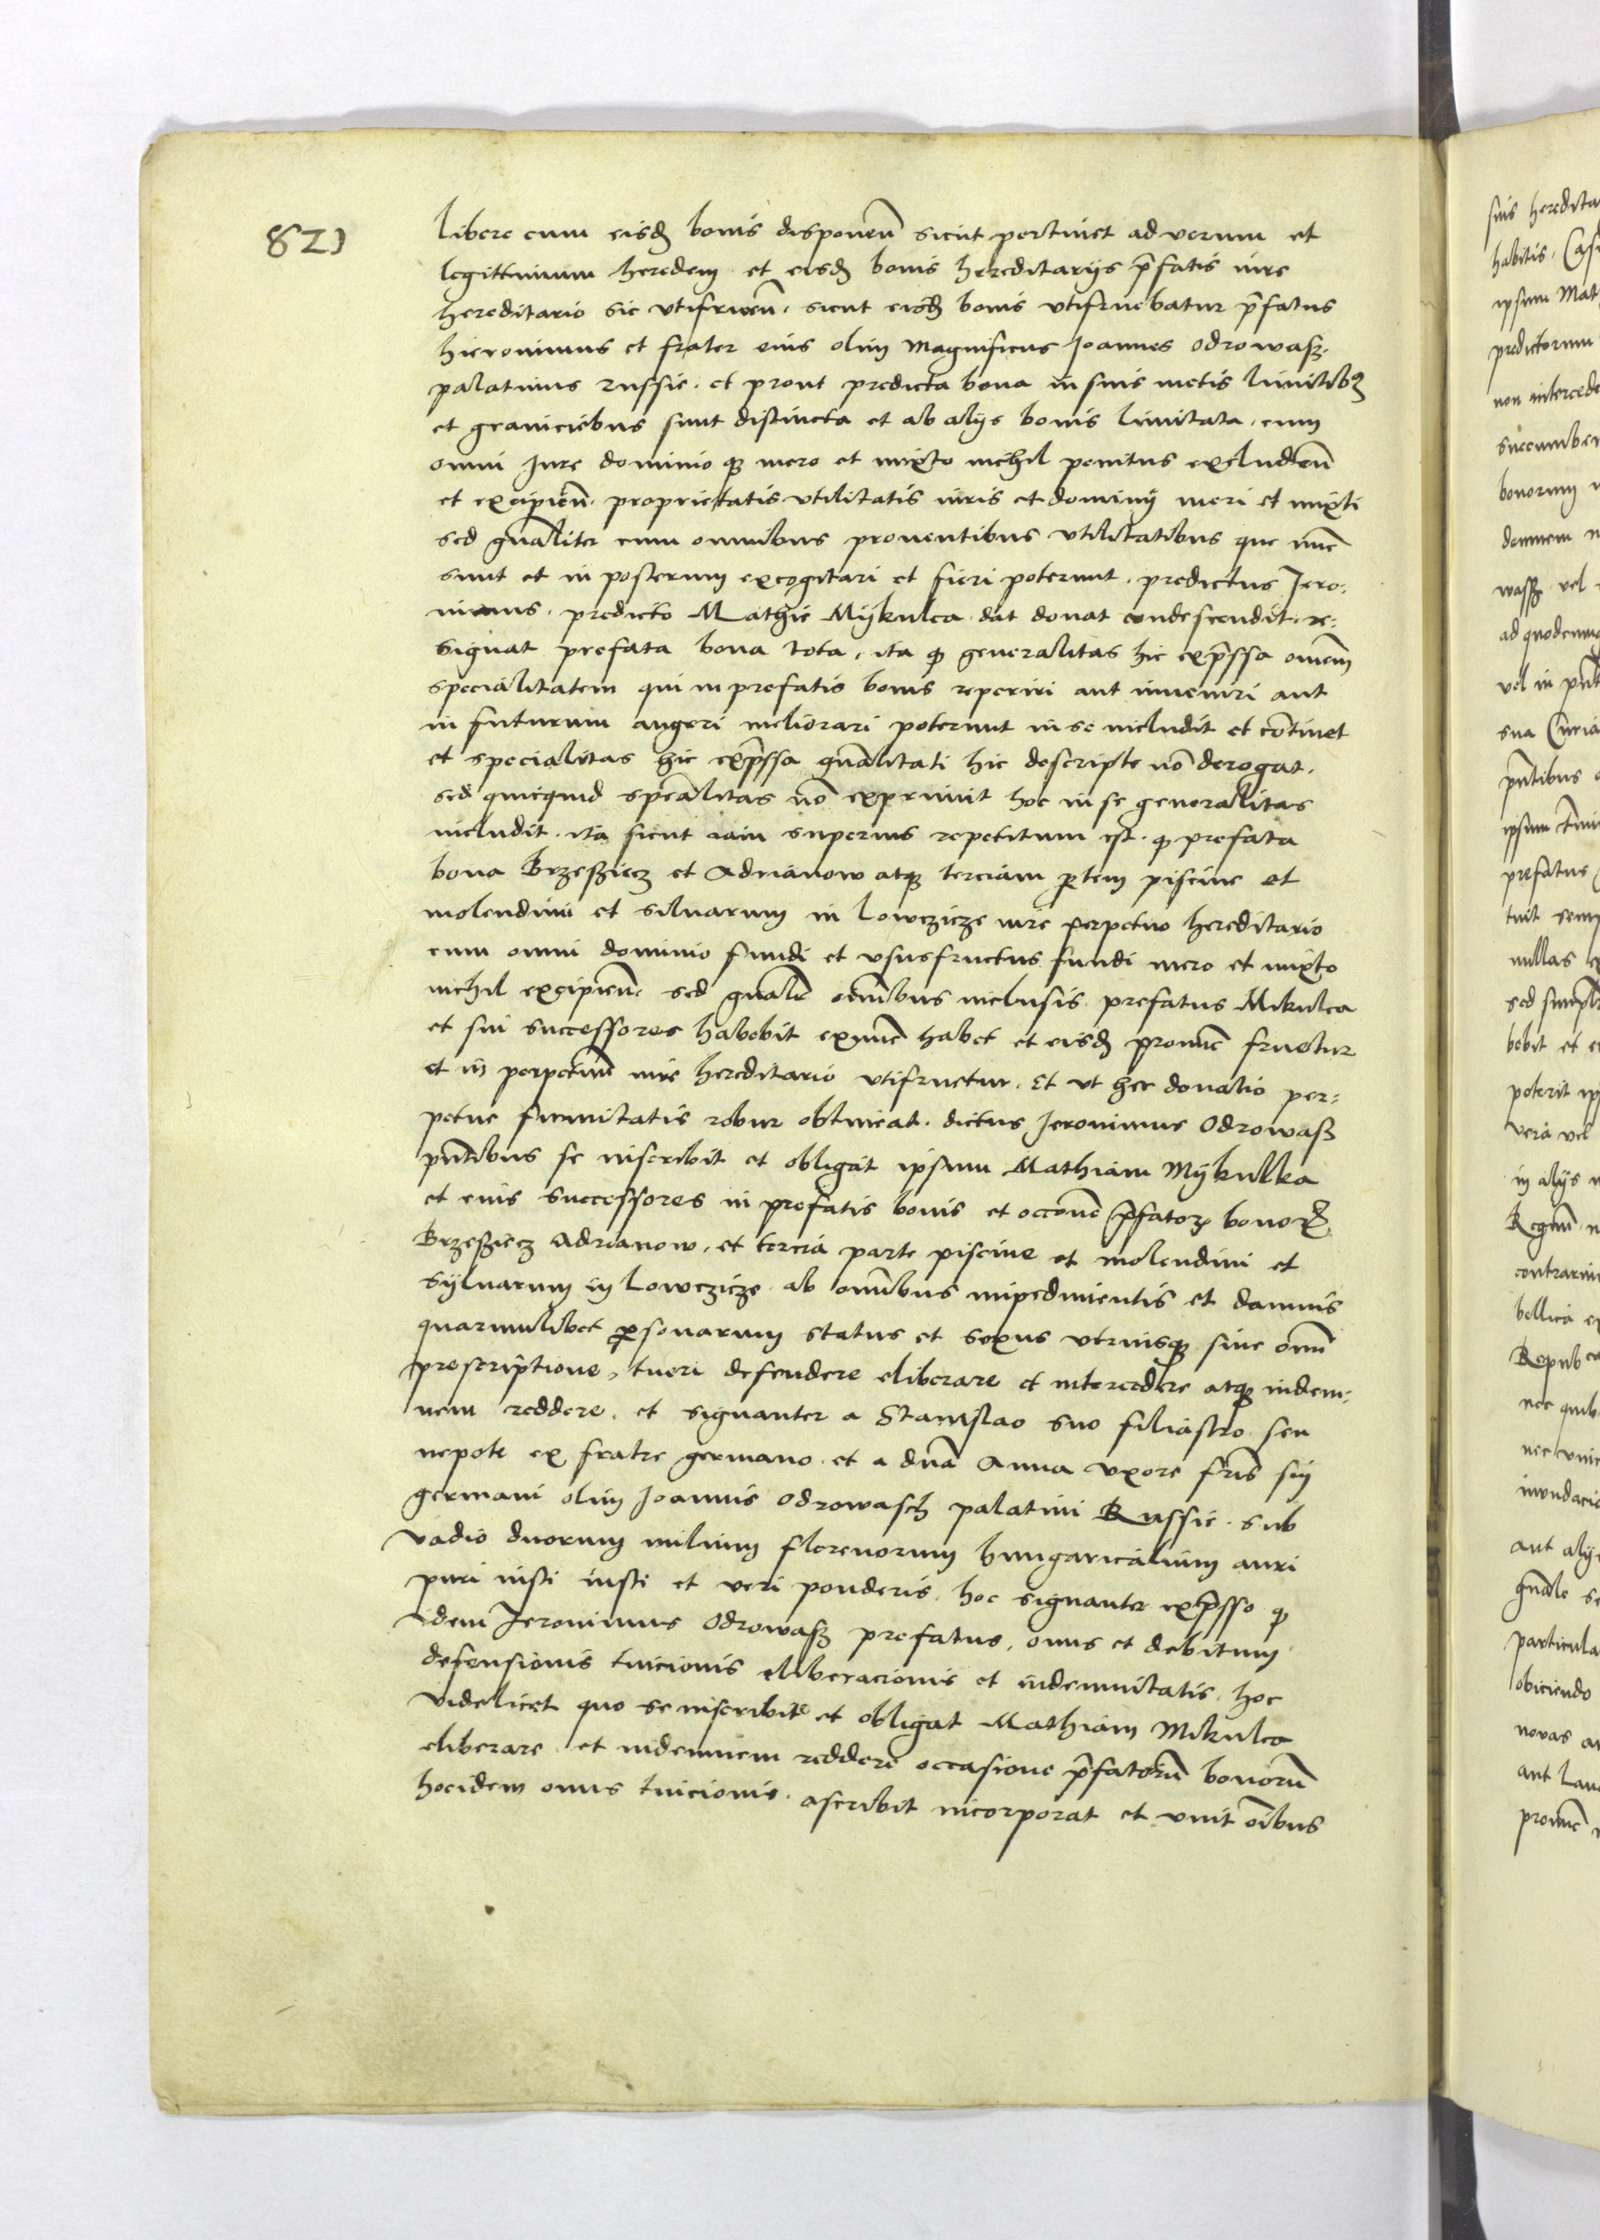 821
libere cum eisdꝫ bonis disponeñ sicut pertinet ad verum et
legittimum heredem et eisdꝫ bonis hereditarijs p̃fatis iure
hereditario sic vtifrueñ. sicut eisdꝫ bonis vtifruebatur p̃fatus
hieronimus et frater eius olim Magnificus Joannes odrowasz.
palatinus russie. et prout predicta bona in suis metis limitibꝫ
et graniciebus sunt distincta et ab alijs bonis limitata. cum
omni Jure dominio qꝫ mero et mixto nichil penitus excludeñ
et excipieñ. proprietatis vtilitatis iuris et dominij meri et mixti
sed gñaliter cum omnibus prouentibus vtilitatibus que nũc
sunt et in posterum excogitari et fieri poterunt. predictus Jero-
nimus. predicto Mathie Mijkulca dat donat condescendit. re-
signat prefata bona tota. ita ꝙ generalitas hic exp̃ssa omẽm
specialitatem qui in prefatis bonis reperiri aut inueniri aut
in futurum augeri meliorari poterunt in se includit et cõtinet
et specialitas hic exp̃ssa gñalitati hic descripte nõ derogat.
sed quicquid speãlitas nõ exprimit hoc in se generalitas
includit. ita sicut iam superius repetitum est. ꝙ prefata
bona Brzesziecz et Adrianow atqꝫ terciam ꝑtem piscine et
molendini et siluarum in Lowczicze iure perpetuo hereditario
cum omni dominio fundi et vsusfructus fundi mero et mixto
nichil excipieñ sed gñalr̃ om̃ibus inclusis prefatus Mikulca
et sui successores habebit exnũc habet et eisdꝫ pronũc fruetur
et in perpetuũ iure hereditario vtifruetur. Et ut hec donatio per-
petue firmitatis robur obtineat. dictus Jeronimus Odrowasz
pñtibus se inscribit et obligat ipsum Mathiam Mijkulka
et eius successores in prefatis bonis et occõne p̃fatoꝝ bonoꝝ
Brzesziecz Adrianow. et tercia parte piscine et molendini et
syluarum in Lowczicze ab om̃ibus impedimentis et damnis
quarumlibet ꝑsonarum status et sexus vtriusqꝫ sine om̃i
prescriptione, tueri defendere eliberare et intercedere atqꝫ indem-
nem reddere. et signanter a Stanislao suo filiastro seu
nepote ex fratre germano et a dña Anna vxore fr̃is sui
germani olim Joannis Odrowasch palatini Russie. sub
vadio duorum milium florenorum hungaricalium auri
puri iusti iusti et veri ponderis. hoc signanter exp̃sso ꝙ
idem Jeronimus Odrowasz prefatus, onus et debitum
defensionis tuicionis eliberacionis et indemnitatis. hoc
videlicet quo se inscribit et obligat Mathiam Mikulca
eliberare et indemnem reddere occasione p̃fatorũ bonorũ
hocidem onus tuicionis. ascribit incorporat et vnit oĩbus